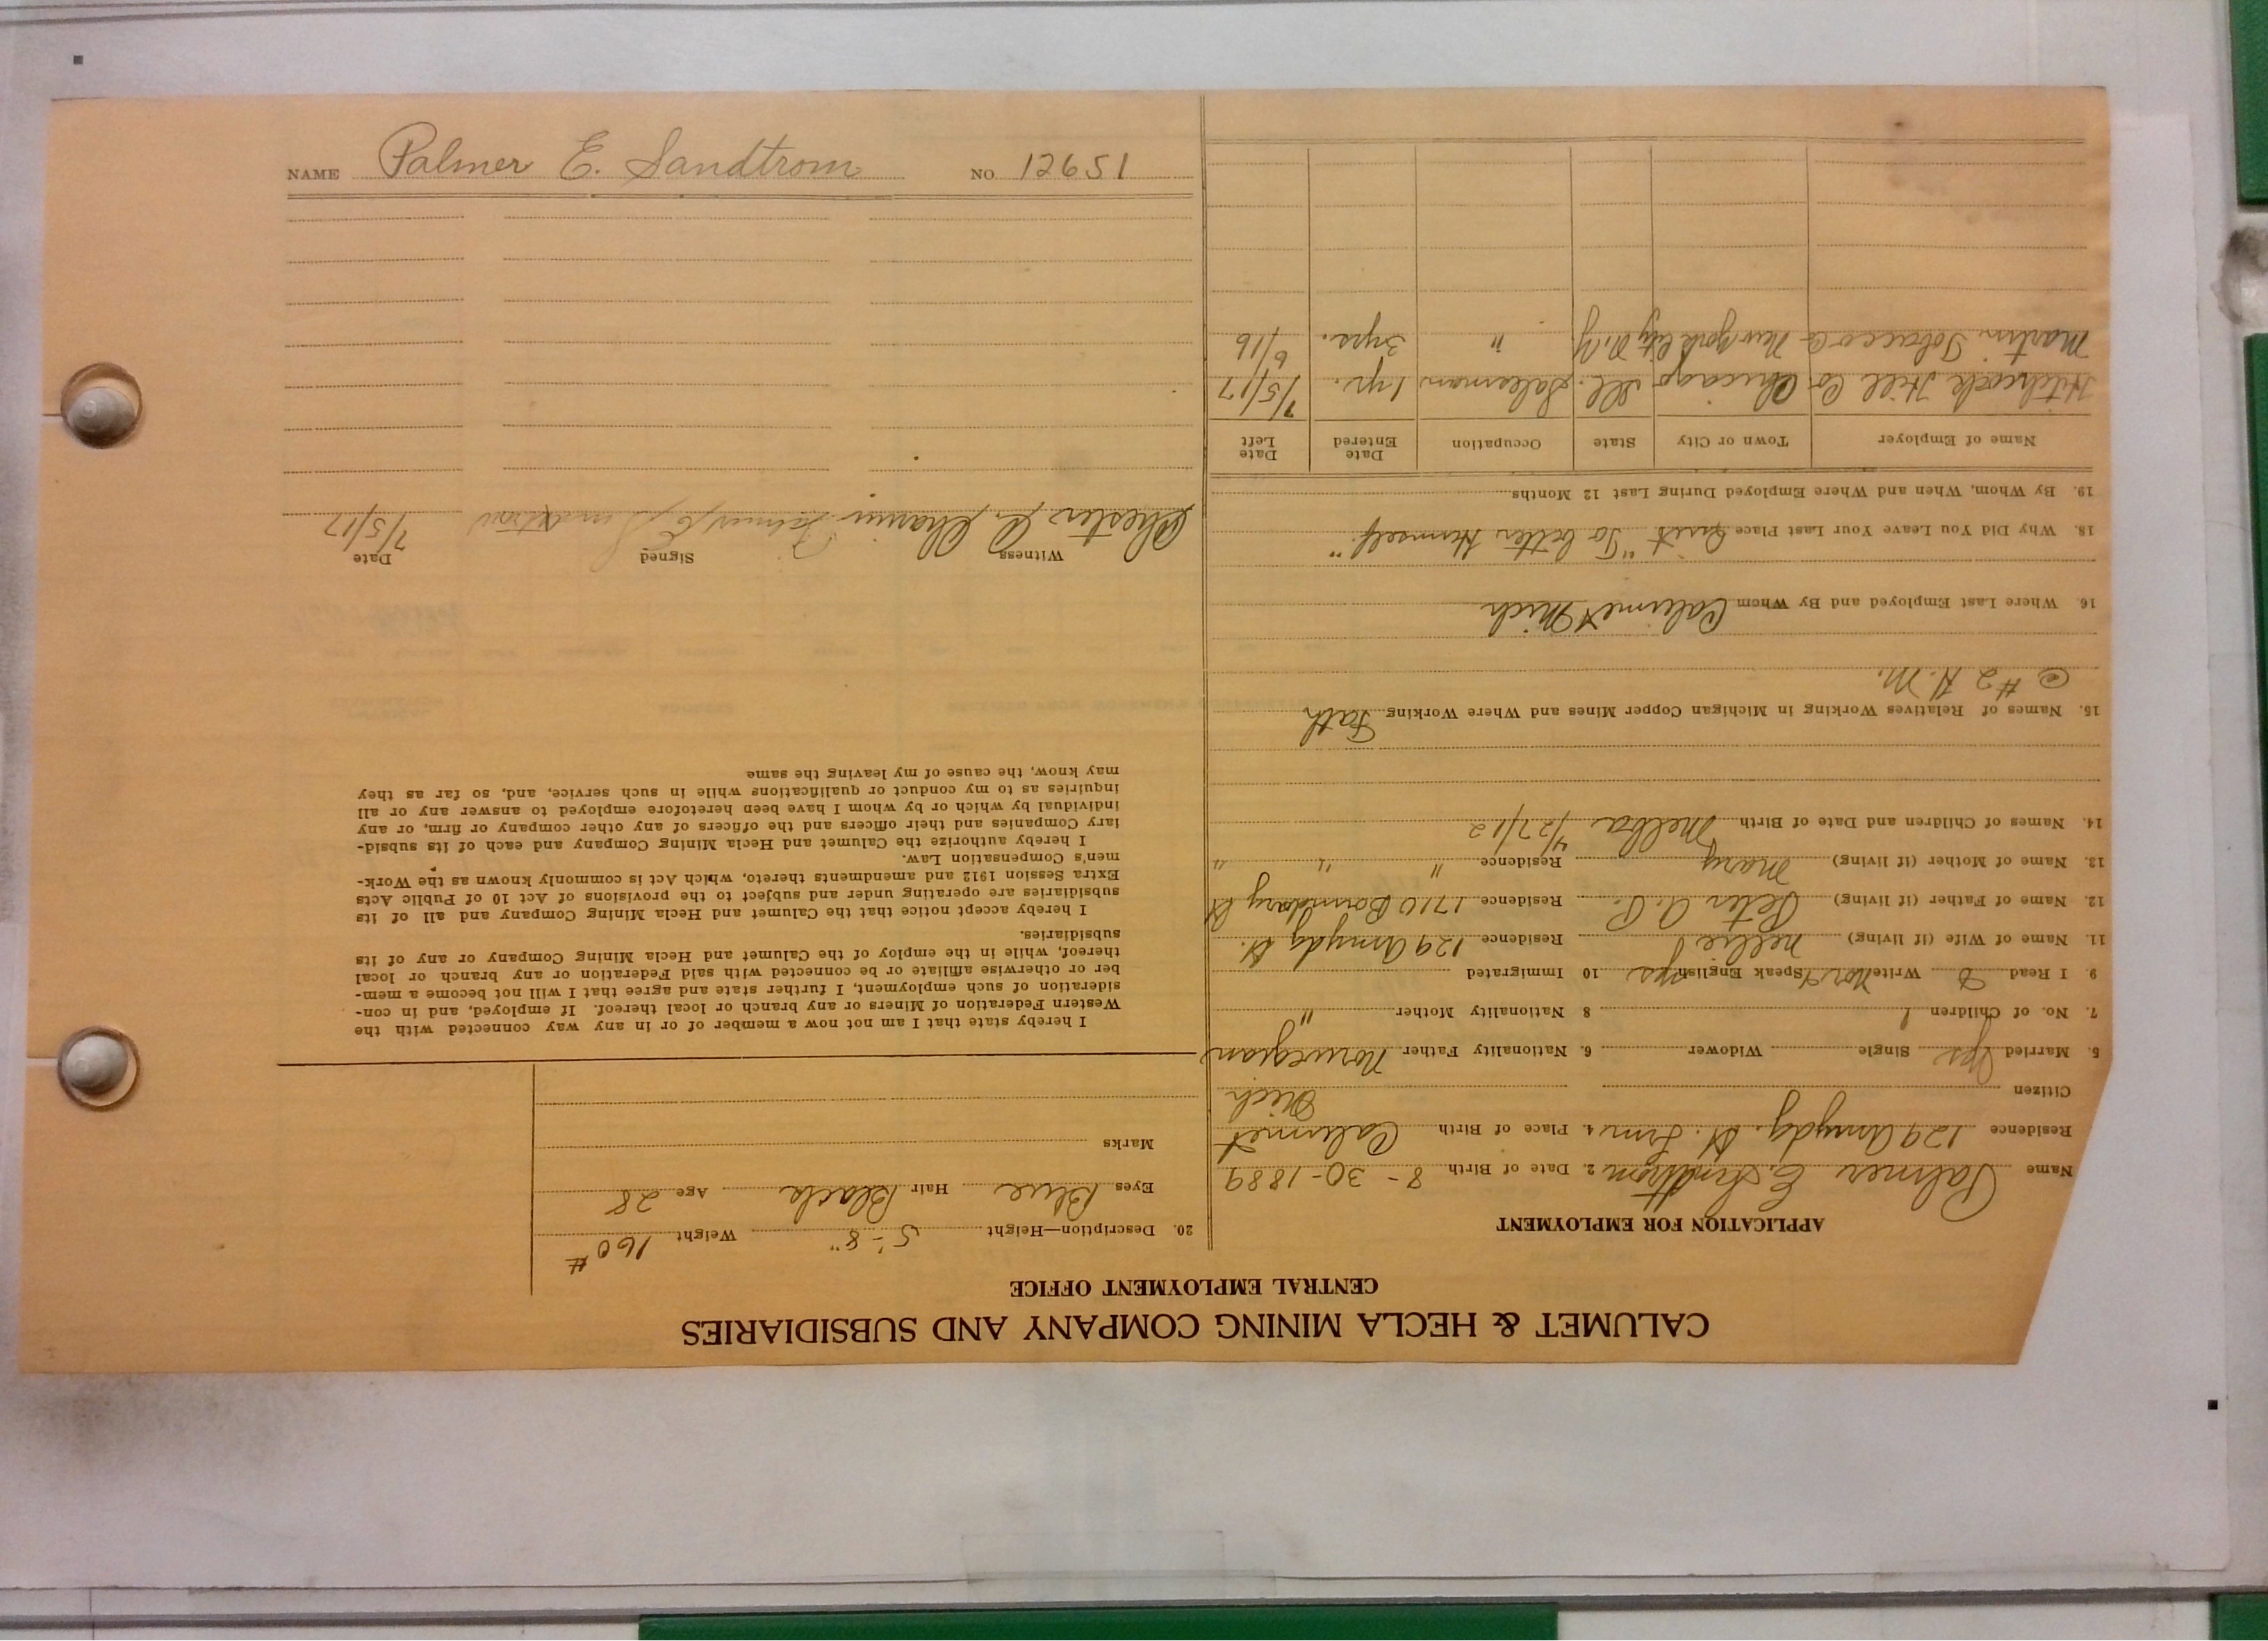 NAME Palmer E. Sandtrom NO. 12651
CALUMET & HECLA MINING COMPANY AND SUBSIDIARIES
CENTRAL EMPLOYMENT OFFICE
APPLICATION FOR EMPLOYMENT
Name Palmer E. Sandtrom 2. Date of Birth 8-30-1889
Residence 129 Armydg. St. 4. Place of Birth Calumet
Citizen Mich
5. Married Yes Single Widower 6. Nationality Father Norwegian
7. No. of Children 1 8 Nationality Mother "
9. I Read & Write Speak English yes 10 Immigrated
11. Name of Wife (if living) Nellie Residence 129 Armydg St.
12. Name of Father (if living) Peter A. P. Residence 1710 Boundary St
13. Name of Mother (if living) Mary Residence " " "
14. Names of Children and Date of Birth Melba 4/27/12
15. Names of Relatives Working in Michigan Copper Mines and Where Working Fath
@ #2 N. M.
16. Where Last Employed and By Whom Calumet Mich
18. Why Did You Leave Your Last Place Quit "To better Himself."
19. By Whom, When and Where Employed During Last 12 Months
Name of Employer Town or City State Occupation Date Entered Date Left
Hitchcock Hill Co Chicago Ill. Salesman 1 yr. 7/5/17
Martin Tobacco Co New York City N.Y " 3 yrs. 6/16
20. Description—Height 5'-8" Weight 160 #
Eyes Blue Hair Black Age 28
Marks
I hereby state that I am not now a member of or in any way connected with the
Western Federation of Miners or any branch or local thereof. If employed, and in con-
sideration of such employment, I further state and agree that I will not become a mem-
ber or otherwise affiliate or be connected with said Federation or any branch or local
thereof, while in the employ of the Calumet and Hecla Mining Company or any of its
subsidiaries.
I hereby accept notice that the Calumet and Hecla Mining Company and all of its
subsidiaries are operating under and subject to the provisions of Act 10 of Public Acts
Extra Session 1912 and amendments thereto, which Act is commonly known as the Work-
men's Compensation Law.
I hereby authorize the Calumet and Hecla Mining Company and each of its subsid-
iary Companies and their officers and the officers of any other company or firm, or any
individual by which or by whom I have been heretofore employed to answer any or all
inquiries as to my conduct or qualifications while in such service, and, so far as they
may know, the cause of my leaving the same
Witness Signed Date
Chester Palmer E Sandstrom 7/5/17